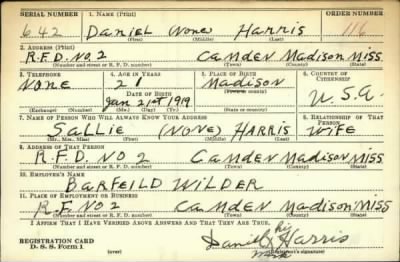 SERIAL NUMBER 1. NAME (Print) ORDER NUMBER
642 Daniel (None) Harris 116
(First) (Middle) (Last)
2. ADDRESS (Print)
R.F.D. NO. 2 Camden Madison Miss.
(Number and street or R. F. D. number) (Town) (County) (State)
3. TELEPHONE 4. AGE IN YEARS 5. PLACE OF BIRTH 6. COUNTRY OF CITIZENSHIP
None 21 Madison
DATE OF BIRTH (Town or county)
Jan 21st 1919 U.S.A.
(Exchange) (Number) (Mo.) (Day) (Yr.) (State or country)
7. NAME OF PERSON WHO WILL ALWAYS KNOW YOUR ADDRESS 8. RELATIONSHIP OF THAT PERSON
SALLIE (NONE) HARRIS WIFE
(Mr., Mrs., Miss) (First) (Middle) (Last)
9. ADDRESS OF THAT PERSON
R.F.D. NO 2 Camden Madison Miss
(Number and street or R. F. D. number) (Town) (County) (State)
10. EMPLOYER'S NAME
BARFEILD WILDER
11. PLACE OF EMPLOYMENT OR BUSINESS
R.F. NO 2 Camden Madison Miss
(Number and street or R. F. D. number) (Town) (County) (State)
I AFFIRM THAT I HAVE VERIFIED ABOVE ANSWERS AND THAT THEY ARE TRUE.
his
REGISTRATION CARD Daniel X Harris
D. S. S. Form 1 (over) mark (Registrant's signature)